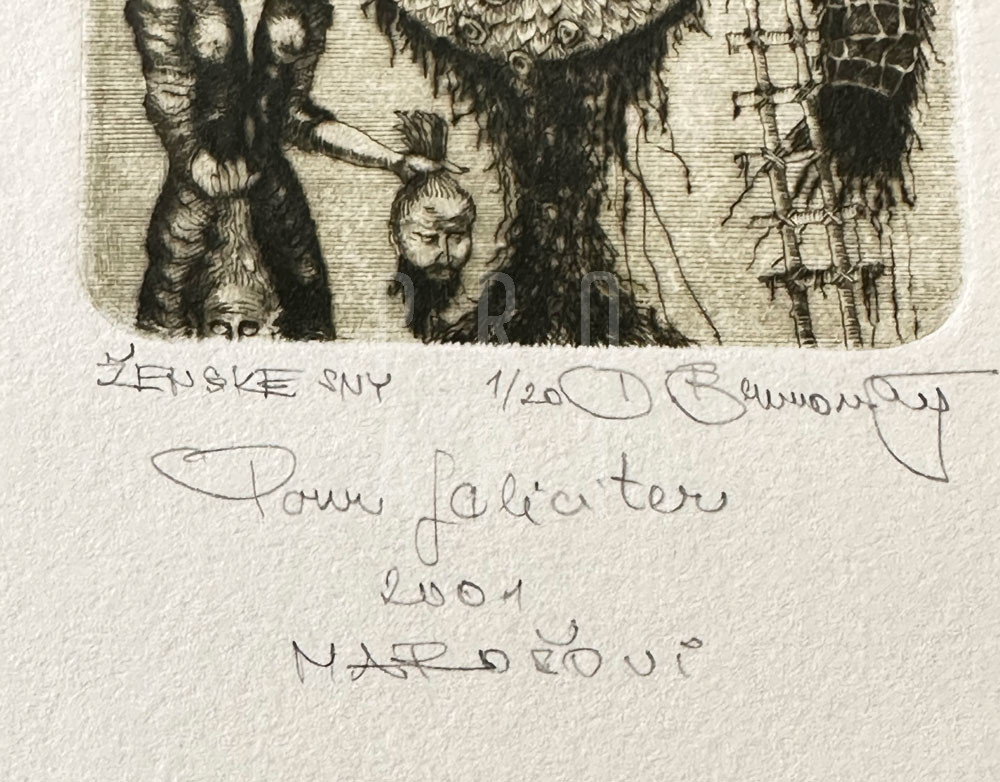 ŽENSKE SNY 1/20 D Brunovský
Pour feliciter
2001
MAROŠOVI